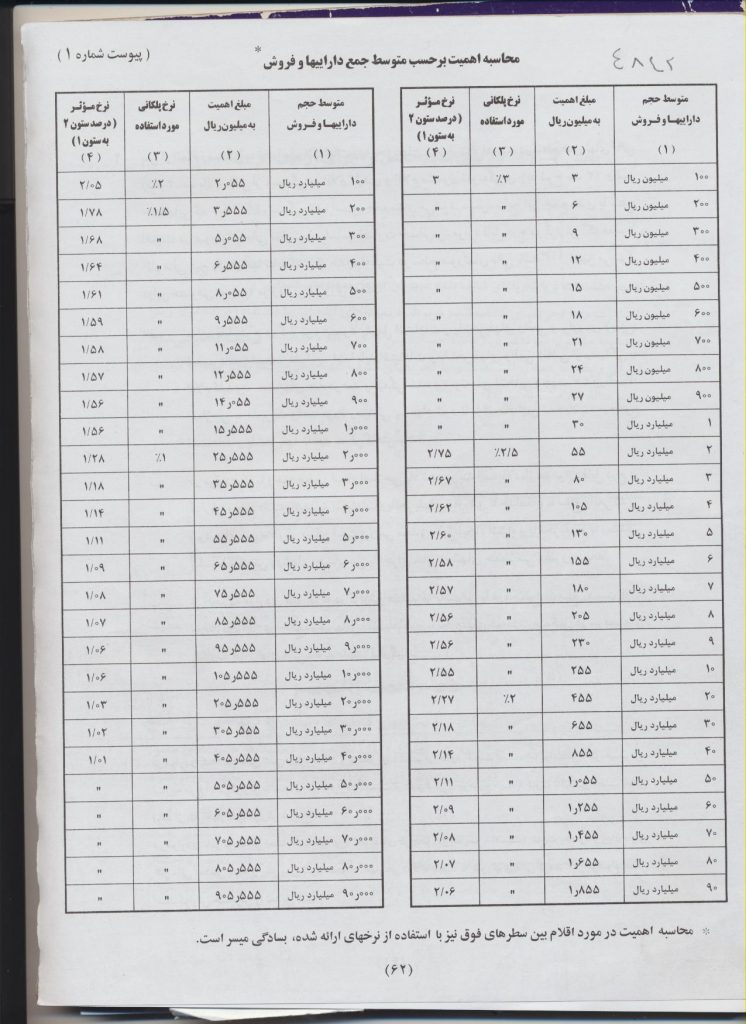 محاسبه اهمیت برحسب متوسط جمع داراییها و فروش*
( پیوست شماره ۱ )
متوسط حجم داراییها و فروش (۱) مبلغ اهمیت به میلیون ریال (۲) نرخ پلکانی مورد استفاده (۳) نرخ مؤثر ( درصد ستون ۲ به ستون ۱) (۴)
۱۰۰ میلیون ریال ۳ ۳٪ ۳
۲۰۰ میلیون ریال ۶ " "
۳۰۰ میلیون ریال ۹ " "
۴۰۰ میلیون ریال ۱۲ " "
۵۰۰ میلیون ریال ۱۵ " "
۶۰۰ میلیون ریال ۱۸ " "
۷۰۰ میلیون ریال ۲۱ " "
۸۰۰ میلیون ریال ۲۴ " "
۹۰۰ میلیون ریال ۲۷ " "
۱ میلیارد ریال ۳۰ " "
۲ میلیارد ریال ۵۵ ۲/۵٪ ۲/۷۵
۳ میلیارد ریال ۸۰ " ۲/۶۷
۴ میلیارد ریال ۱۰۵ " ۲/۶۲
۵ میلیارد ریال ۱۳۰ " ۲/۶۰
۶ میلیارد ریال ۱۵۵ " ۲/۵۸
۷ میلیارد ریال ۱۸۰ " ۲/۵۷
۸ میلیارد ریال ۲۰۵ " ۲/۵۶
۹ میلیارد ریال ۲۳۰ " ۲/۵۶
۱۰ میلیارد ریال ۲۵۵ " ۲/۵۵
۲۰ میلیارد ریال ۴۵۵ ۲٪ ۲/۲۷
۳۰ میلیارد ریال ۶۵۵ " ۲/۱۸
۴۰ میلیارد ریال ۸۵۵ " ۲/۱۴
۵۰ میلیارد ریال ۱ر۰۵۵ " ۲/۱۱
۶۰ میلیارد ریال ۱ر۲۵۵ " ۲/۰۹
۷۰ میلیارد ریال ۱ر۴۵۵ " ۲/۰۸
۸۰ میلیارد ریال ۱ر۶۵۵ " ۲/۰۷
۹۰ میلیارد ریال ۱ر۸۵۵ " ۲/۰۶
متوسط حجم داراییها و فروش (۱) مبلغ اهمیت به میلیون ریال (۲) نرخ پلکانی مورد استفاده (۳) نرخ مؤثر ( درصد ستون ۲ به ستون ۱) (۴)
۱۰۰ میلیارد ریال ۲ر۰۵۵ ۲٪ ۲/۰۵
۲۰۰ میلیارد ریال ۳ر۵۵۵ ۱/۵٪ ۱/۷۸
۳۰۰ میلیارد ریال ۵ر۰۵۵ " ۱/۶۸
۴۰۰ میلیارد ریال ۶ر۵۵۵ " ۱/۶۴
۵۰۰ میلیارد ریال ۸ر۰۵۵ " ۱/۶۱
۶۰۰ میلیارد ریال ۹ر۵۵۵ " ۱/۵۹
۷۰۰ میلیارد ریال ۱۱ر۰۵۵ " ۱/۵۸
۸۰۰ میلیارد ریال ۱۲ر۵۵۵ " ۱/۵۷
۹۰۰ میلیارد ریال ۱۴ر۰۵۵ " ۱/۵۶
۱ر۰۰۰ میلیارد ریال ۱۵ر۵۵۵ " ۱/۵۶
۲ر۰۰۰ میلیارد ریال ۲۵ر۵۵۵ ۱٪ ۱/۲۸
۳ر۰۰۰ میلیارد ریال ۳۵ر۵۵۵ " ۱/۱۸
۴ر۰۰۰ میلیارد ریال ۴۵ر۵۵۵ " ۱/۱۴
۵ر۰۰۰ میلیارد ریال ۵۵ر۵۵۵ " ۱/۱۱
۶ر۰۰۰ میلیارد ریال ۶۵ر۵۵۵ " ۱/۰۹
۷ر۰۰۰ میلیارد ریال ۷۵ر۵۵۵ " ۱/۰۸
۸ر۰۰۰ میلیارد ریال ۸۵ر۵۵۵ " ۱/۰۷
۹ر۰۰۰ میلیارد ریال ۹۵ر۵۵۵ " ۱/۰۶
۱۰ر۰۰۰ میلیارد ریال ۱۰۵ر۵۵۵ " ۱/۰۶
۲۰ر۰۰۰ میلیارد ریال ۲۰۵ر۵۵۵ " ۱/۰۳
۳۰ر۰۰۰ میلیارد ریال ۳۰۵ر۵۵۵ " ۱/۰۲
۴۰ر۰۰۰ میلیارد ریال ۴۰۵ر۵۵۵ " ۱/۰۱
۵۰ر۰۰۰ میلیارد ریال ۵۰۵ر۵۵۵ " "
۶۰ر۰۰۰ میلیارد ریال ۶۰۵ر۵۵۵ " "
۷۰ر۰۰۰ میلیارد ریال ۷۰۵ر۵۵۵ " "
۸۰ر۰۰۰ میلیارد ریال ۸۰۵ر۵۵۵ " "
۹۰ر۰۰۰ میلیارد ریال ۹۰۵ر۵۵۵ " "
* محاسبه اهمیت در مورد اقلام بین سطرهای فوق نیز با استفاده از نرخهای ارائه شده، بسادگی میسر است.
(۶۲)